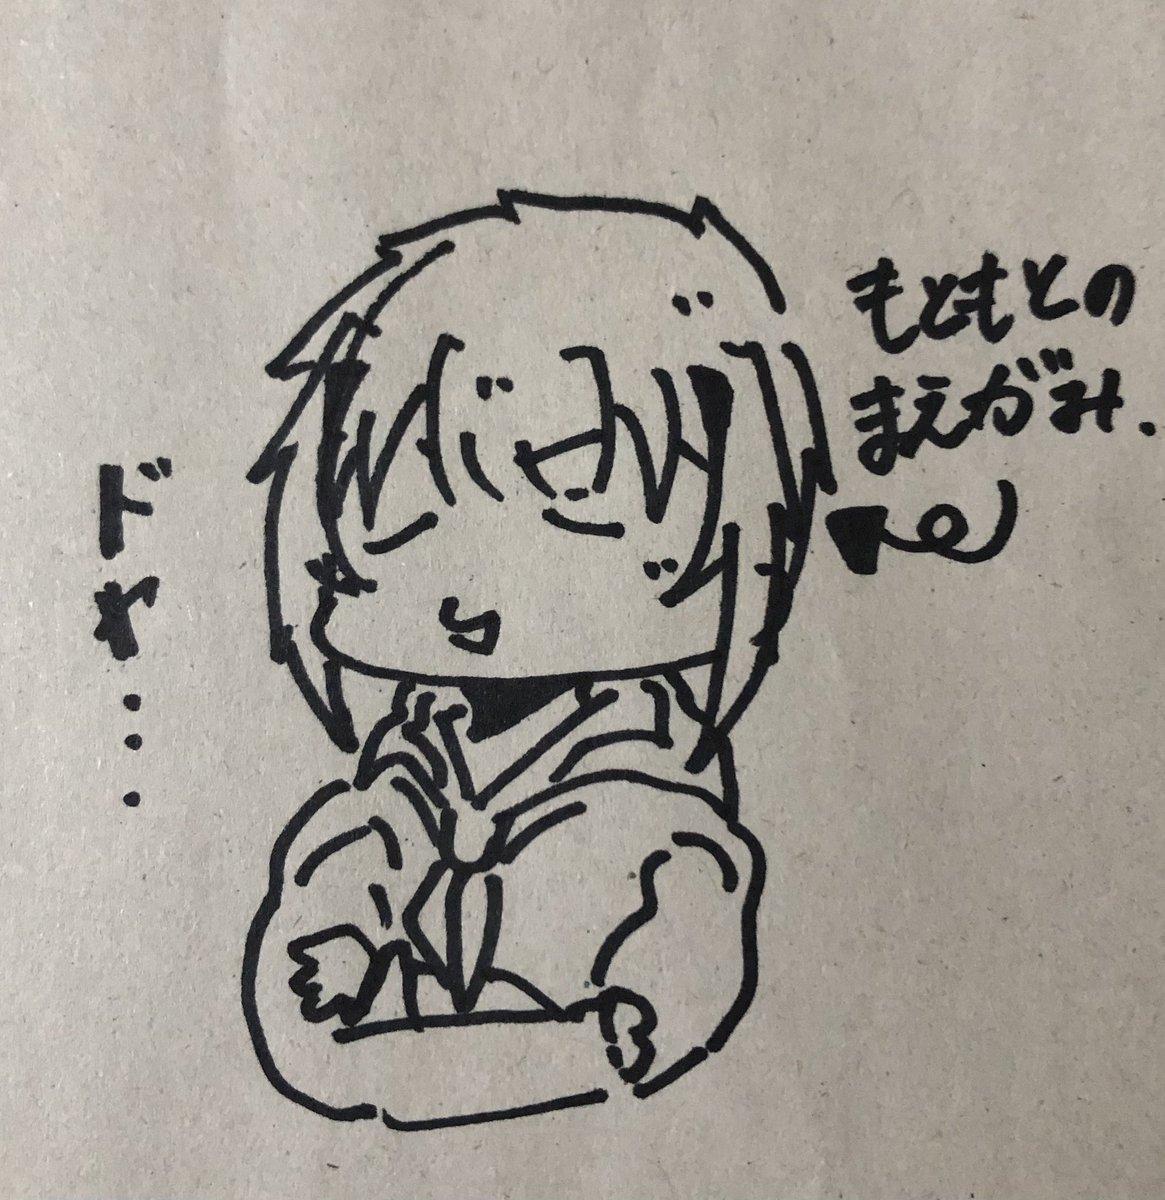 もともとの
まえがみ.
ドヤ...